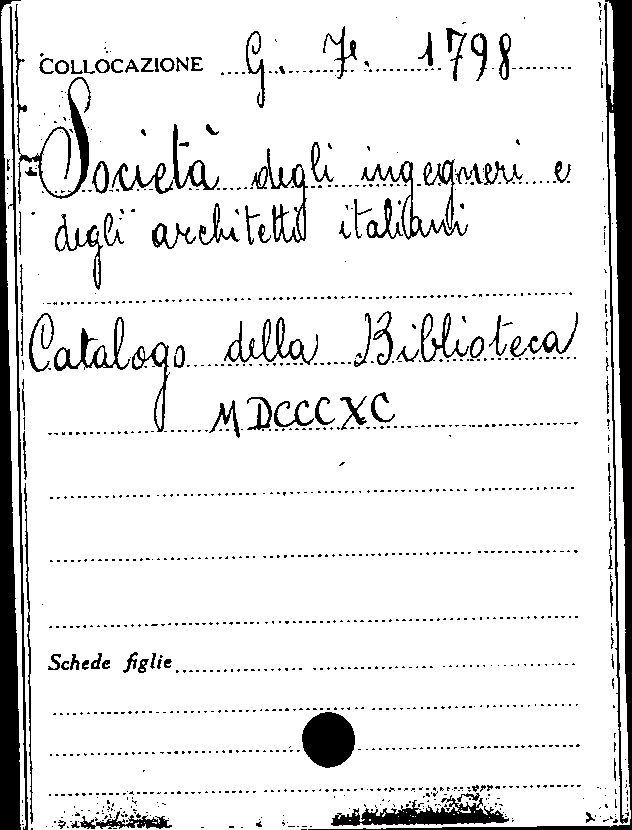 COLLOCAZIONE G. F. 1798
Società degli ingegneri e
degli architetti italiani
Catalogo della Biblioteca
MDCCCXC
Schede figlie